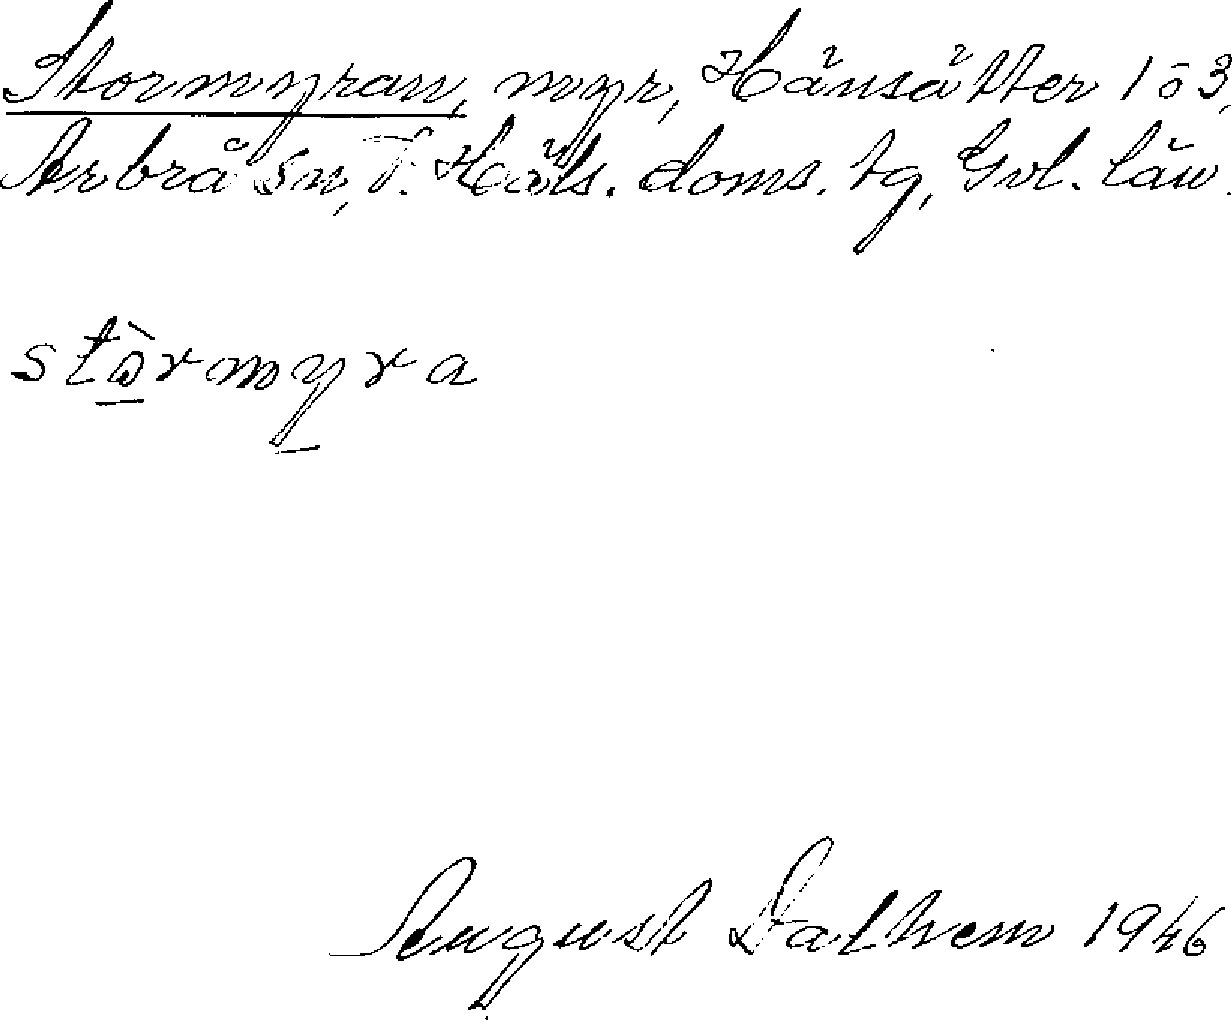 Stormyran, myr, Hänsätter 1 o 3,
Arbrå sn, V. Häls. doms. tg, Gvl. län.
stòrmyra
August Dalhem 1946